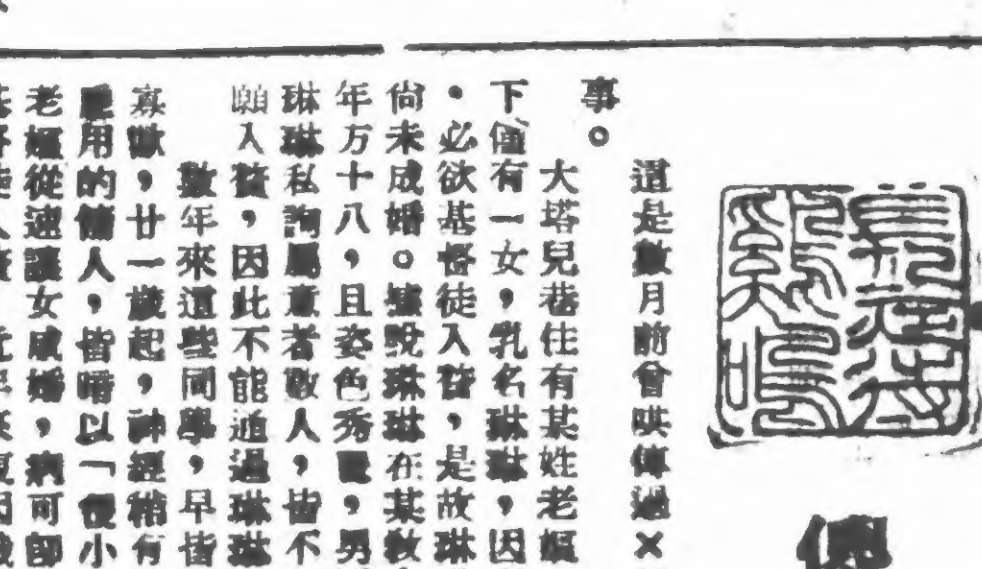 這是數月前曾哄傳過×
事。
大塔兒巷住有某姓老嫗
下僅有一女，乳名琳琳，因
，必欲基督徒入贅，是故琳
尚未成婚。據說琳琳在某教
年方十八，且姿色秀麗，男
琳琳私詢屬意者數人，皆不
願入贅，因此不能通過琳琳
數年來這些同學，早皆
寡歡，廿一歲起，神經稍有
用的傭人，皆暗以「小
老嫗從速讓女成婚，病可